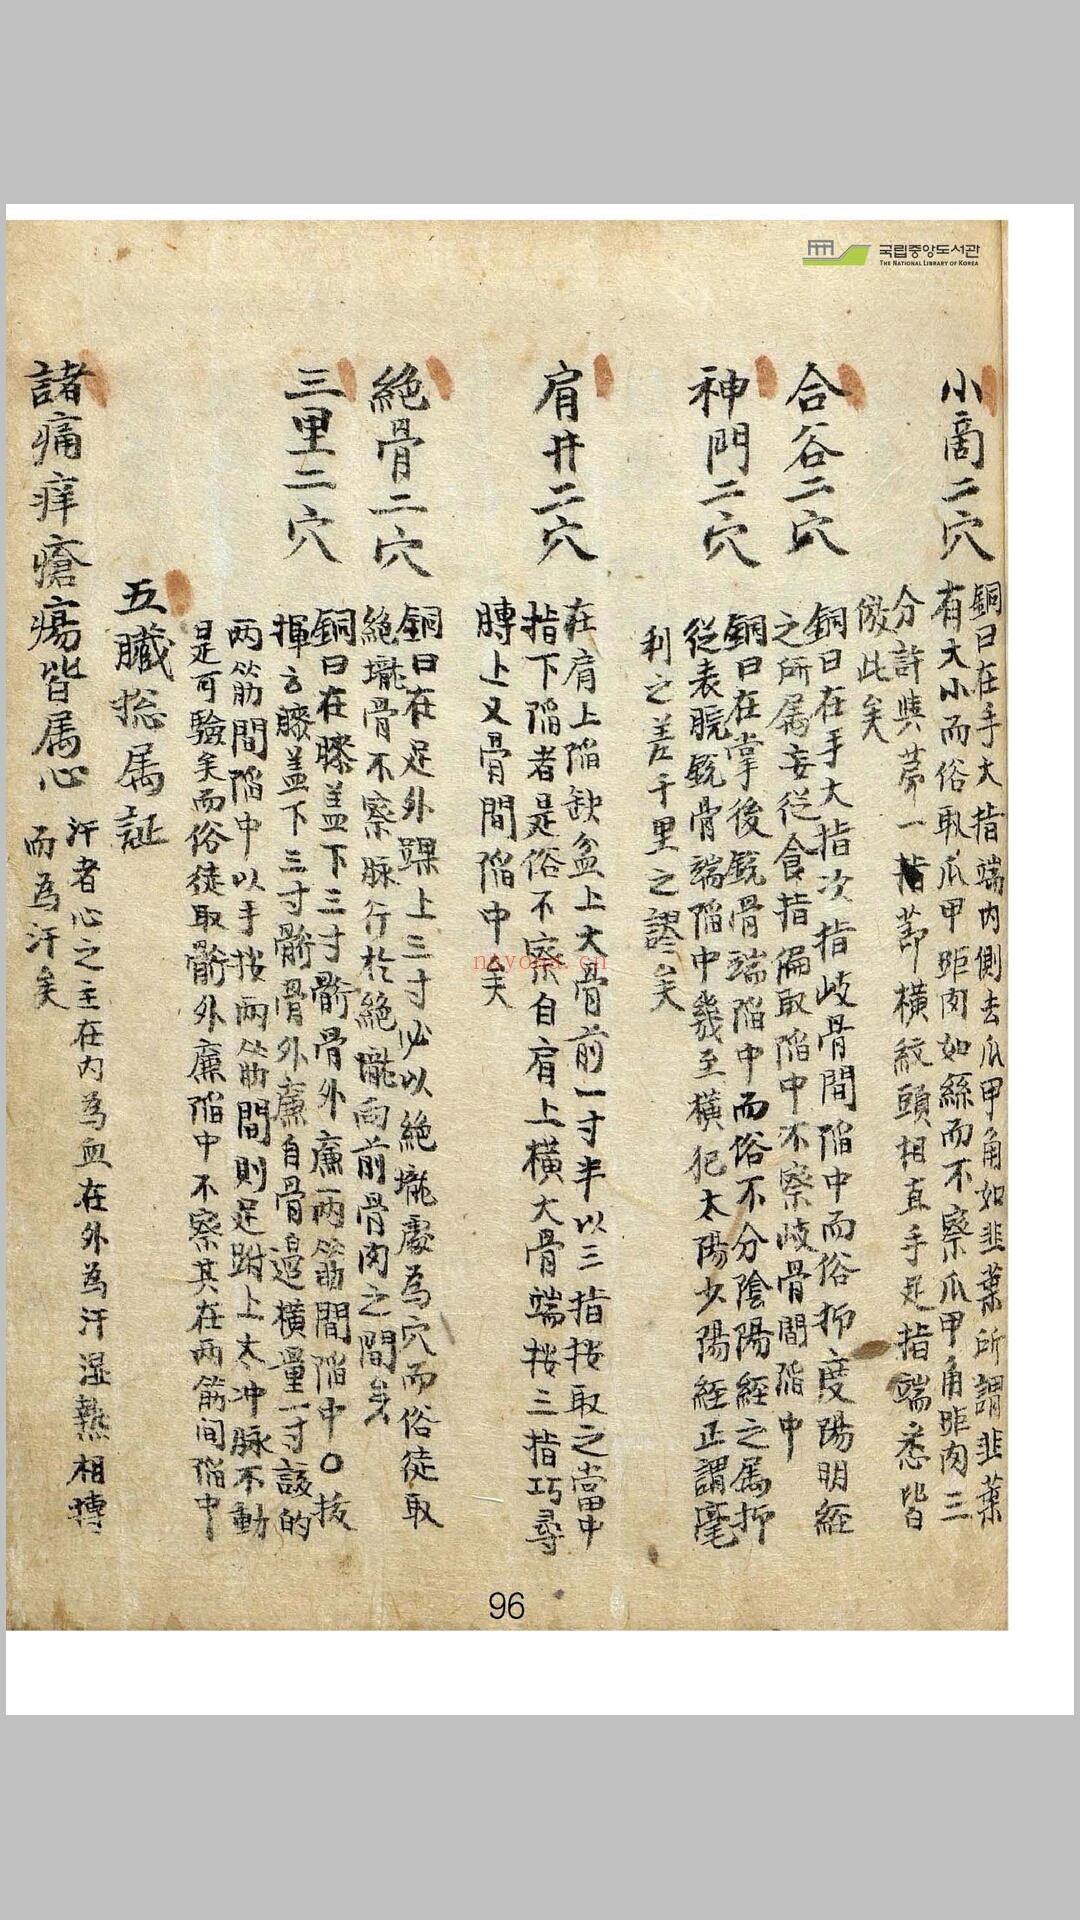 국립중앙도서관
THE NATIONAL LIBRARY OF KOREA
小商二穴
銅曰在手大指端内側去爪甲角如韭葉所謂韭葉
有大小而俗取爪甲距肉如絲而不察爪甲角距肉三
分許與第一指節橫紋頭相直手足指端悉皆
倣此矣
合谷二穴
銅曰在手大指次指岐骨間陷中而俗抑度陽明經
之所属妄從食指偏取陷中不察岐骨間陷中
神門二穴
銅曰在掌後銳骨端陷中而俗不分陰陽經之属抑
從表腕銳骨端陷中幾至橫犯太陽少陽經正謂毫
利之差千里之謬矣
肩井二穴
在肩上陷缺盆上大骨前一寸半以三指按取之當中
指下陷者是俗不察自肩上橫大骨端按三指巧尋
膊上叉骨間陷中矣
絶骨二穴
銅曰在足外踝上三寸必以絶壠處為穴而俗徒取
絶壠骨不察脉行於絶壠向前骨肉之間矣
三里二穴
銅曰在膝盖下三寸䯒骨外廉兩筋間陷中○按
揮言膝盖下三寸䯒骨外廉自骨邉橫量一寸該的
兩筋間陷中以手按兩筋間則足跗上太冲脉不動
是可驗矣而俗徒取䯒外廉陷中不察其在兩筋间陷中
五臟総属証
諸痛痒瘡瘍皆属心
汗者心之主在内為血在外為汗湿熱相搏
而為汗矣
nayona.cn
96